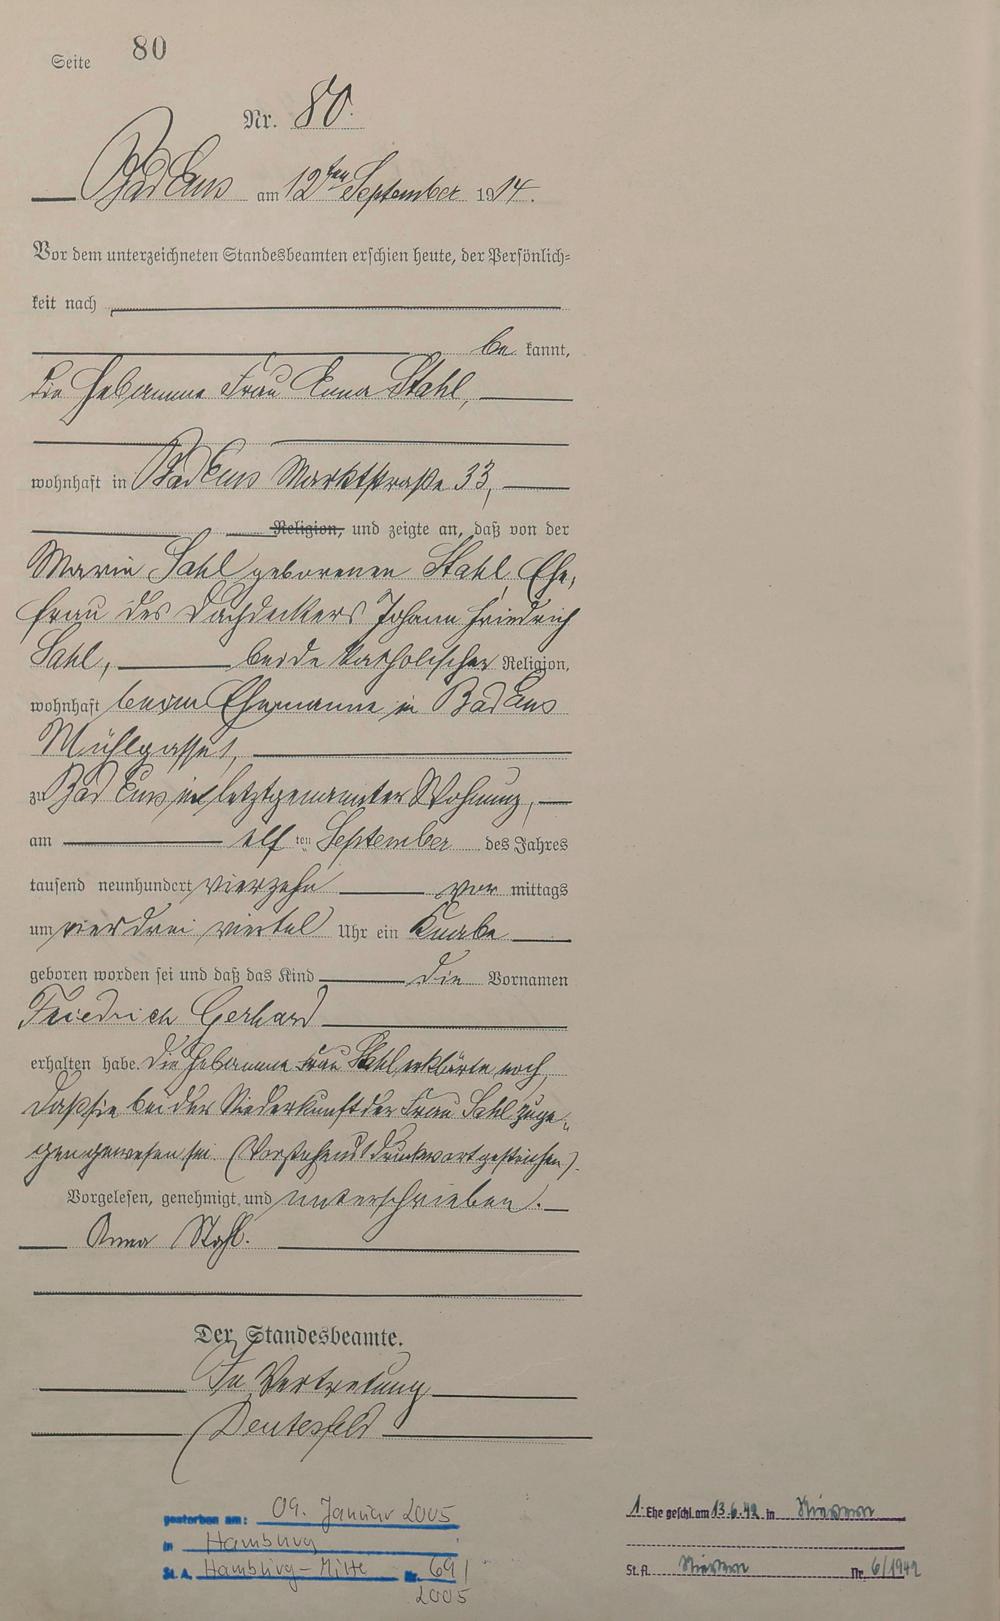 Seite 80
Nr. 80.
Bad Ems am 12ten September 1914.
Vor dem unterzeichneten Standesbeamten erschien heute, der Persönlich-
keit nach
be kannt,
die Hebamme Frau Anna Stahl,
wohnhaft in Bad Ems Marktstraße 33,
Religion, und zeigte an, daß von der
Maria Sahl geborenen Stahl, Ehe-
frau des Dachdeckers Johann Friedrich
Sahl, beide katholischer Religion,
wohnhaft beim Ehemanne in Bad Ems
Mühlgasse 1,
zu Bad Ems in letztgenannter Wohnung,
am elf ten September des Jahres
tausend neunhundert vierzehn vor mittags
um vier drei viertel Uhr ein Knabe
geboren worden sei und daß das Kind die Vornamen
Friedrich Gerhard
erhalten habe. Die Hebamme Frau Stahl erklärte noch,
daß sie bei der Niederkunft der Frau Sahl zuge-
gen gewesen sei. (Vorstehend 1 Druckwort gestrichen).
Vorgelesen, genehmigt und unterschrieben.
Anna Stahl.
Der Standesbeamte.
In Vertretung
gestorben am: 09. Januar 2005
in Hamburg
St. A. Hamburg-Mitte Nr. 69/
2005
1. Ehe geschl. am 13.6.42 in Nievern
St. A. Nievern Nr. 6/1942